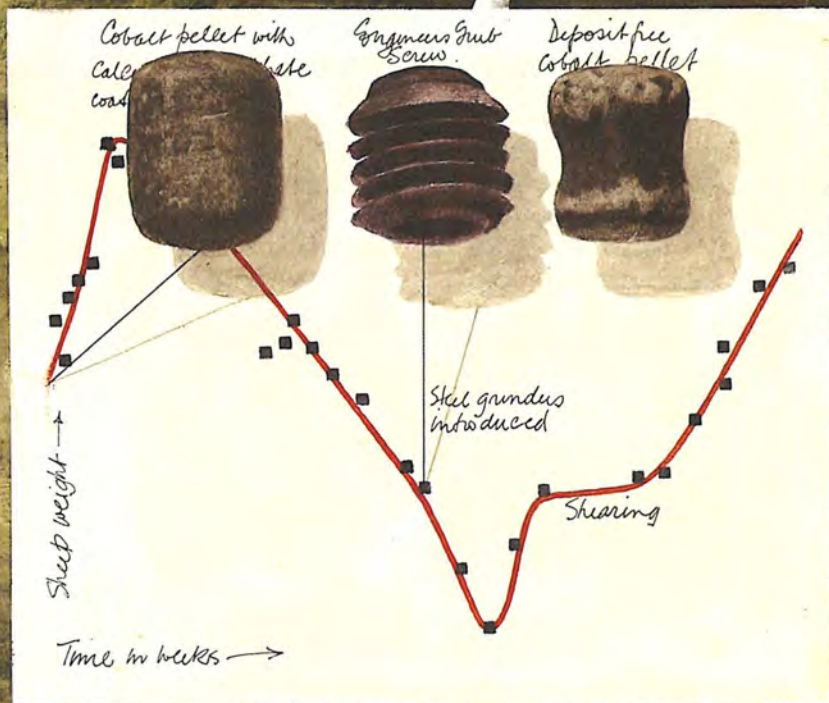 Cobalt pellet with
Engineers Grub
Screw.
Deposit free
cobalt pellet
Steel grinders
introduced
Shearing
Sheep weight →
Time in weeks →